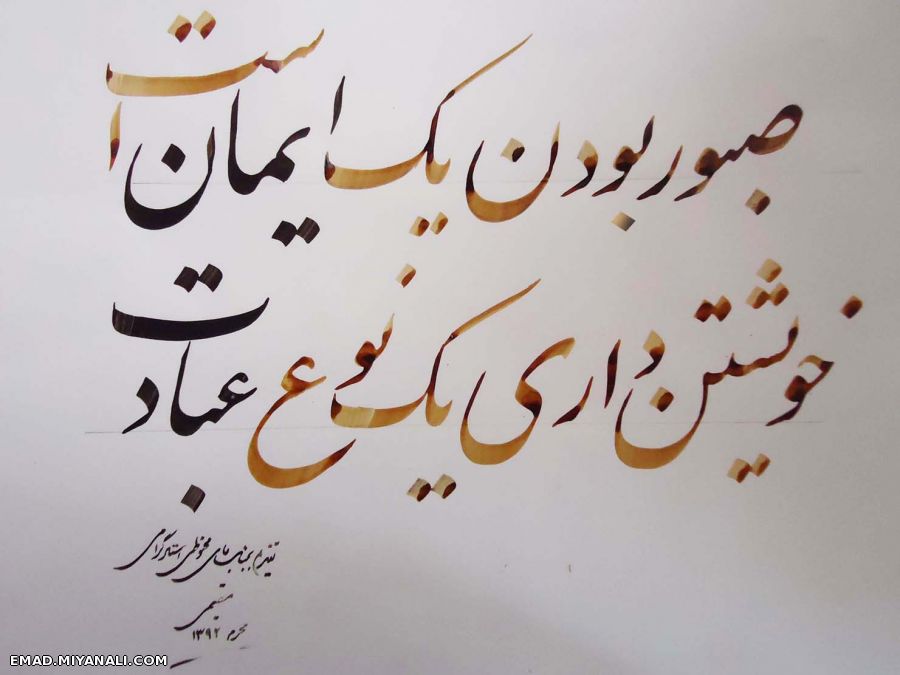 صبور بودن یک ایمان است
خویشتن داری یک نوع عبادت
تقدیم بجناب آقای محفوظی استاد گرامی
مقیمی
محرم ۱۳۹۲
EMAD.MIYANALI.COM